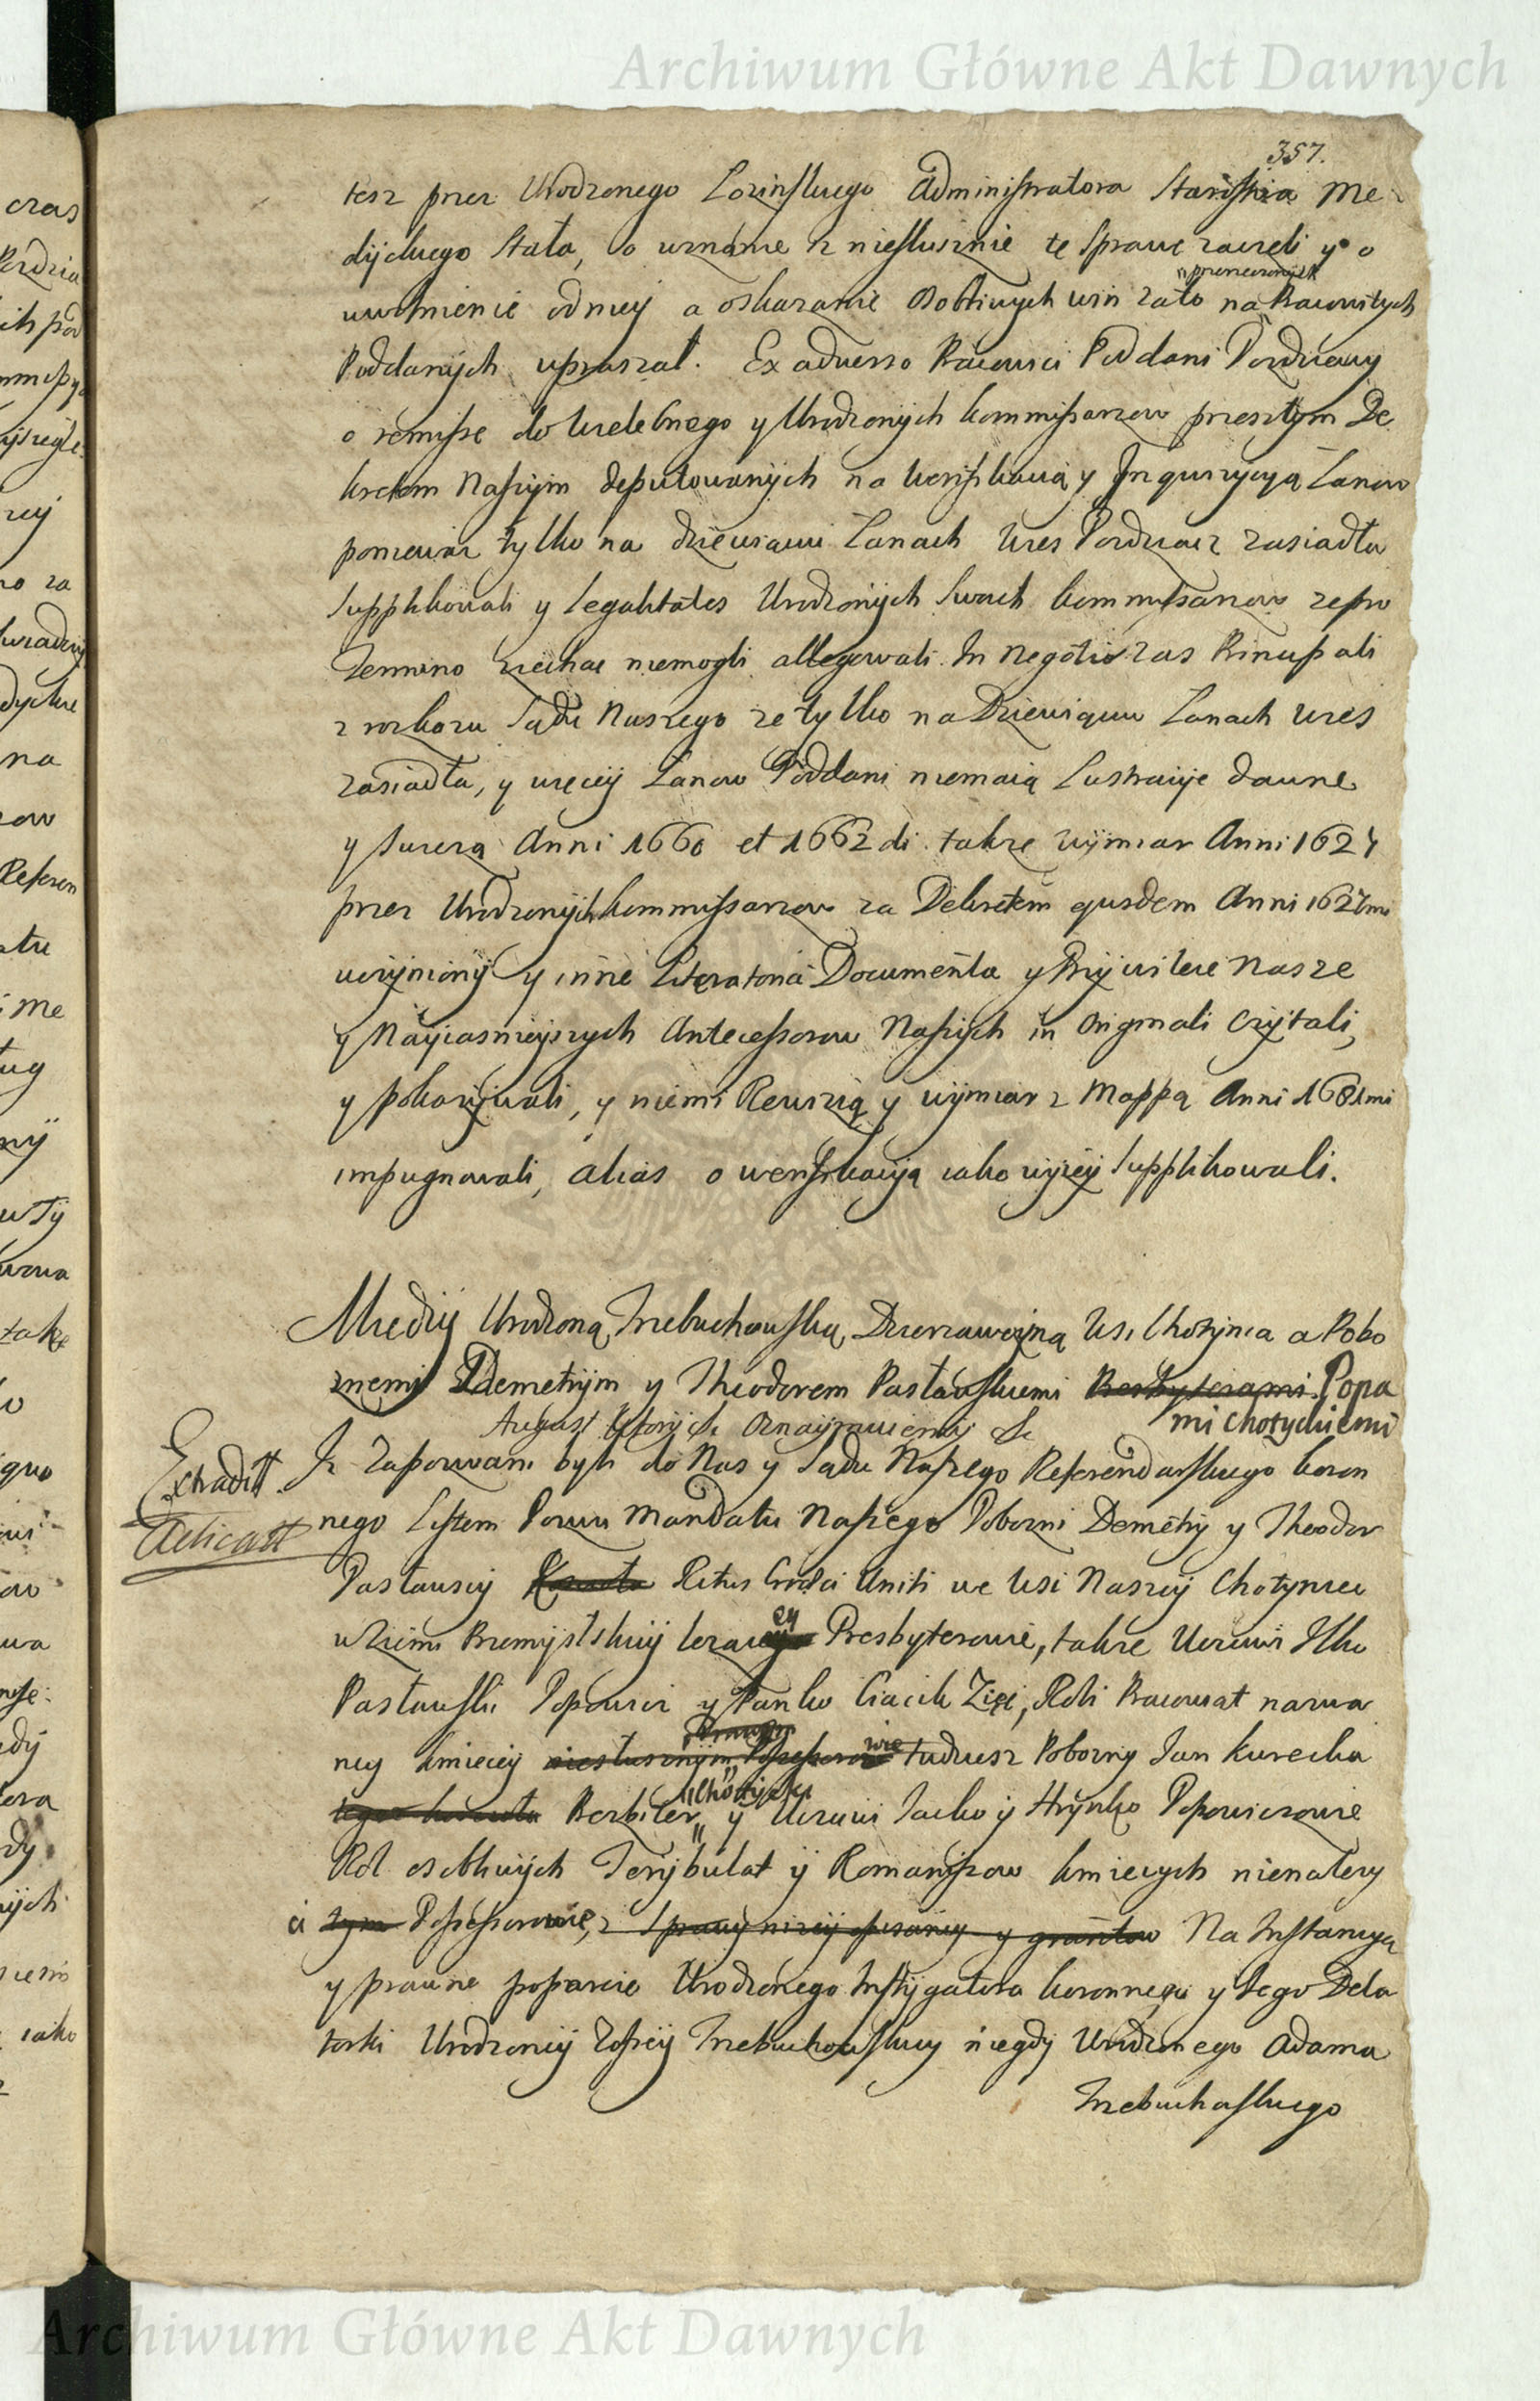 Archiwum Główne Akt Dawnych
357.
tesz przez Urodzonego Lozinskiego Administratora Starostwa Me
dyckiego Stało, o uznanie z niesłusznie tę Sprawę zaczęli y o
uwolnienie od niey a oskazanie osobliwych win zato na przerzeczonych Pracowitych
Poddanych upraszał. Ex adverso Pracowici Poddani Porduewy
o remisse do Wielebnego y Urodzonych Kommissarzow przeszłym De
kretem Naszym deputowanych na Weryfikacią y Inquizycyą Łanow
poniewaz tylko na dziewiąciu Łanach Wies Porduacz zasiadła
Supplikowali y legalitates Urodzonych Swoich Kommissarzow ze pro
Termino ziechac niemogli allegowali. In Negotio zas Principali
z rozkazu Sądu Naszego ze tylko na Dziewiąciu Łanach Wies
zasiadła, y więcey Łanow Poddani niemaią Lustracyje dawne
y Swiezą Anni 1660 et 1662di takze wymiar Anni 1627
przez Urodzonych Kommissarzow za Dekretem ejusdem Anni 1627mi
uczyniony y inne Literatoria Documenta y Przywileie Nasze
y Nayiasnieyszych Antecessorow Naszych in Originali czytali,
y pokazywali, y niemi Rewizią y wymiar z Mappą Anni 1681mi
impugnowali, alias o weryfikacyą iako wyżey Supplikowali.
Między Urodzoną Trzebuchowską Dzierzawczyną Wsi Chotynca a Pobo
znemi Demetrym y Theodorem Pasławskiemi Presbyterami Popa
mi Chotynieckiemi
August Wtory &c. Oznaymuiemy &c
Extradit.
Iz Zapozwani byli do Nas y Sądu Naszego Referendarskiego Koron
nego Listem Pozwu Mandatu Naszego Pobozni Demetry y Theodor
Pasławscy Ritus Graeci Uniti we Wsi Naszey Chotyncu
w Ziemi Przemyslskiey lezącey Presbyterowie, takze Uczciwi Ilko
Pasławski Popowicz y Panko Ciacik Zięć, Roli Pracowat nazwa
ney kmiecey niesłusznym Possessorowie tudziesz Pobozny Jan Kurecka
Presbiter y Uczciwi Jacko y Hrynko Popowiczowie
Rol osobliwych Terybulat y Romaniszow kmiecych nienalezy
ci Possessorowie, z Sprawy nizey opisaney y gruntow Na Instancyą
y prawne poparcie Urodzonego Instygatora Koronnego y Iego Dela
torki Urodzoney Zofiey Trzebuchowskiey niegdy Urodzonego Adama
Trzebuchoskiego
Archiwum Główne Akt Dawnych